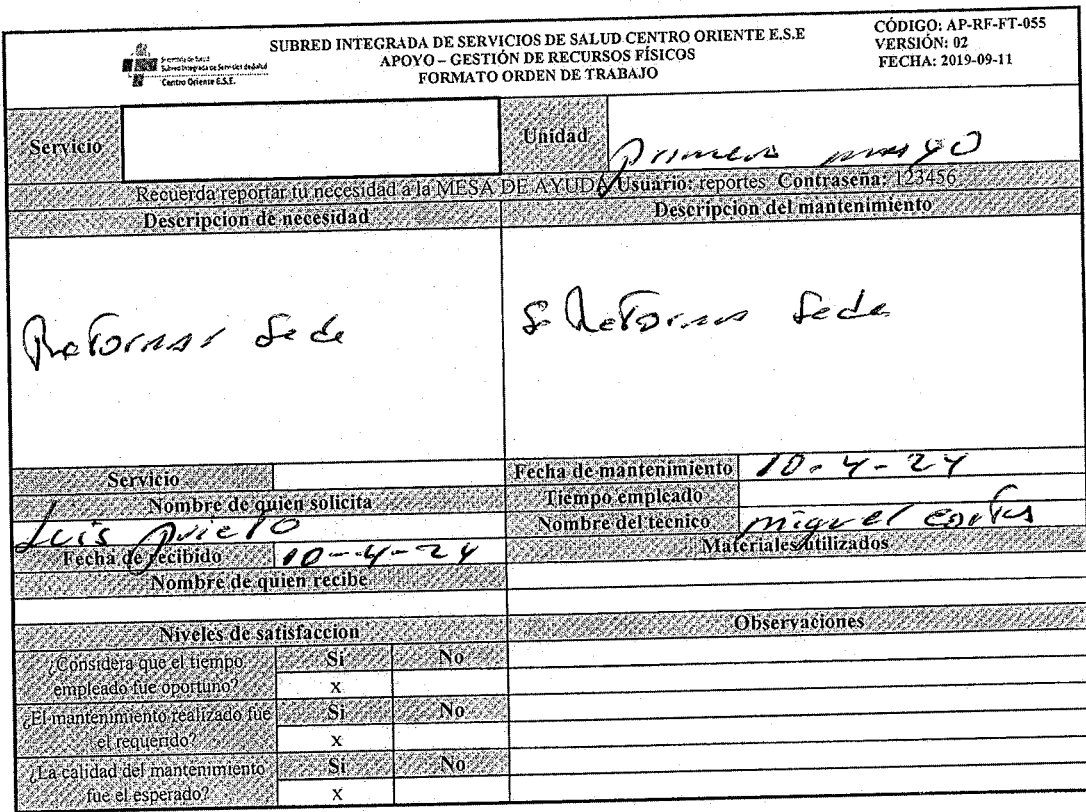 Secretaría de Salud
Subred Integrada de Servicios de Salud
Centro Oriente E.S.E.
SUBRED INTEGRADA DE SERVICIOS DE SALUD CENTRO ORIENTE E.S.E
APOYO – GESTIÓN DE RECURSOS FÍSICOS
FORMATO ORDEN DE TRABAJO
CÓDIGO: AP-RF-FT-055
VERSIÓN: 02
FECHA: 2019-09-11
Servicio
Unidad
primero mayo
Recuerda reportar tu necesidad a la MESA DE AYUDA Usuario: reportes Contraseña: 123456
Descripcion de necesidad
Descripcion del mantenimiento
Sede
Sede
Servicio
Fecha de mantenimiento 10-4-24
Nombre de quien solicita
Tiempo empleado
Luis Prieto
Nombre del técnico miguel
Fecha de recibido 10-4-24
Materiales utilizados
Nombre de quien recibe
Niveles de satisfaccion
Observaciones
¿Considera que el tiempo
empleado fue oportuno?
Si No
x
¿El mantenimiento realizado fue
el requerido?
Si No
x
¿La calidad del mantenimiento
fue el esperado?
Si No
x